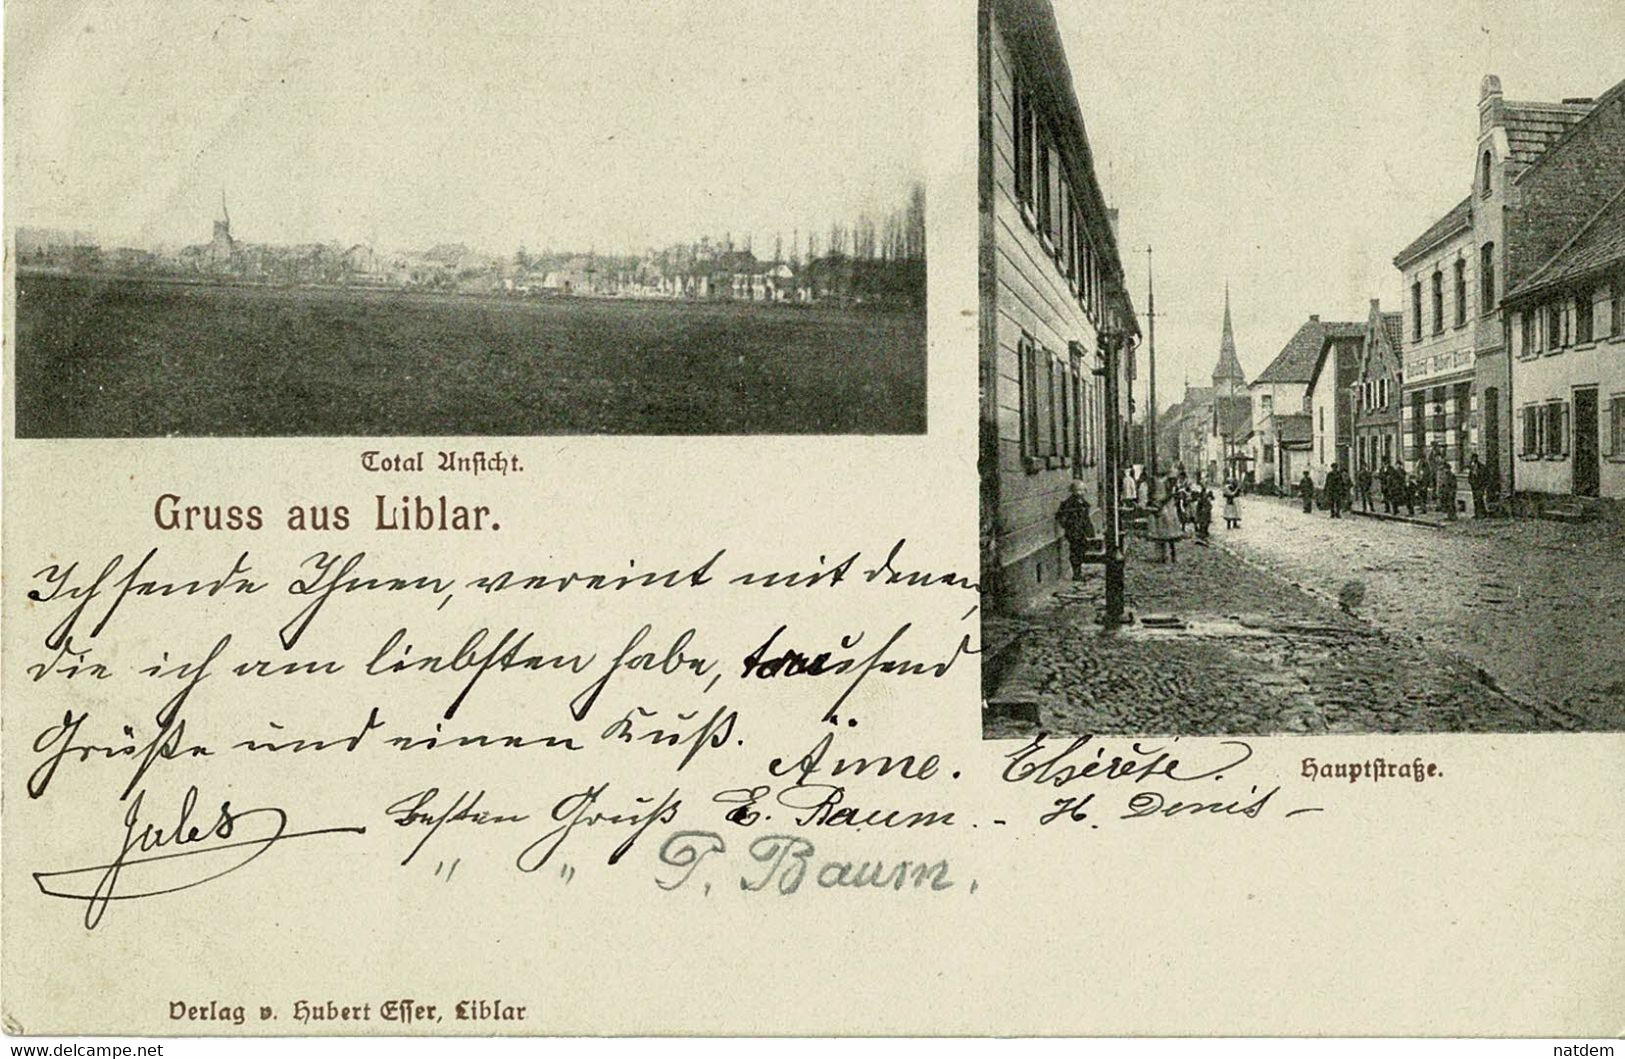 Total Ansicht.
Gruss aus Liblar.
Ich sende Ihnen, vereint mit denen,
die ich am liebsten habe, tausend
Grüße und einen Kuß.
Änne.
Hauptstraße.
Jules
Besten Gruß E. Baum. - H. Denis -
" " P. Baum.
Verlag v. Hubert Esser, Liblar
www.delcampe.net
natdem